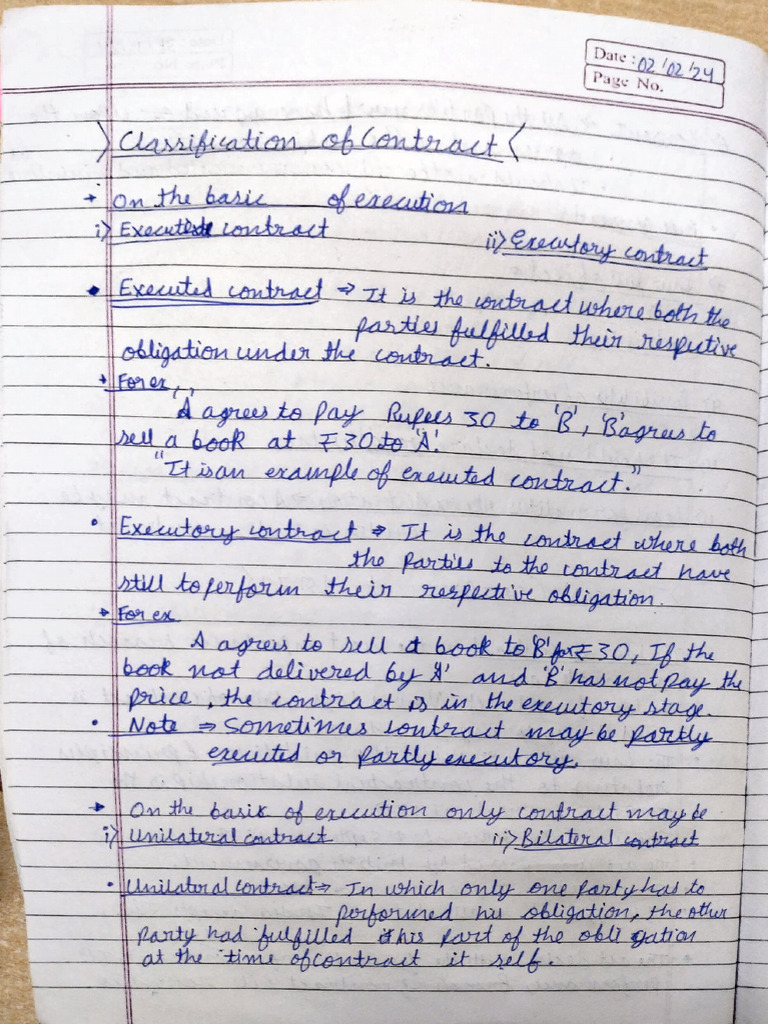 Date : 02/02/24
Page No.
Classification of Contract
→ On the basic of execution
i) Executed contract ii) Executory contract
• Executed contract ⇒ It is the contract where both the
parties fulfilled their respective
obligation under the contract.
→ For ex,,
A agrees to Pay Rupees 30 to 'B', 'B' agrues to
sell a book at ₹30 to 'A'.
"It is an example of executed contract."
• Executory contract ⇒ It is the contract where both
the parties to the contract have
still to perform their respective obligation.
→ For ex
A agrees to sell a book to 'B' for ₹30, If the
book not delivered by 'A' and 'B' has not pay the
price, the contract is in the executory stage.
• Note ⇒ Sometimes contract may be partly
executed or partly executory.
→ On the basis of execution only contract may be
i) Unilateral contract ii) Bilateral contract
• Unilateral contract ⇒ In which only one party has to
performed his obligation, the other
party had fulfilled his part of the obligation
at the time of contract it self.